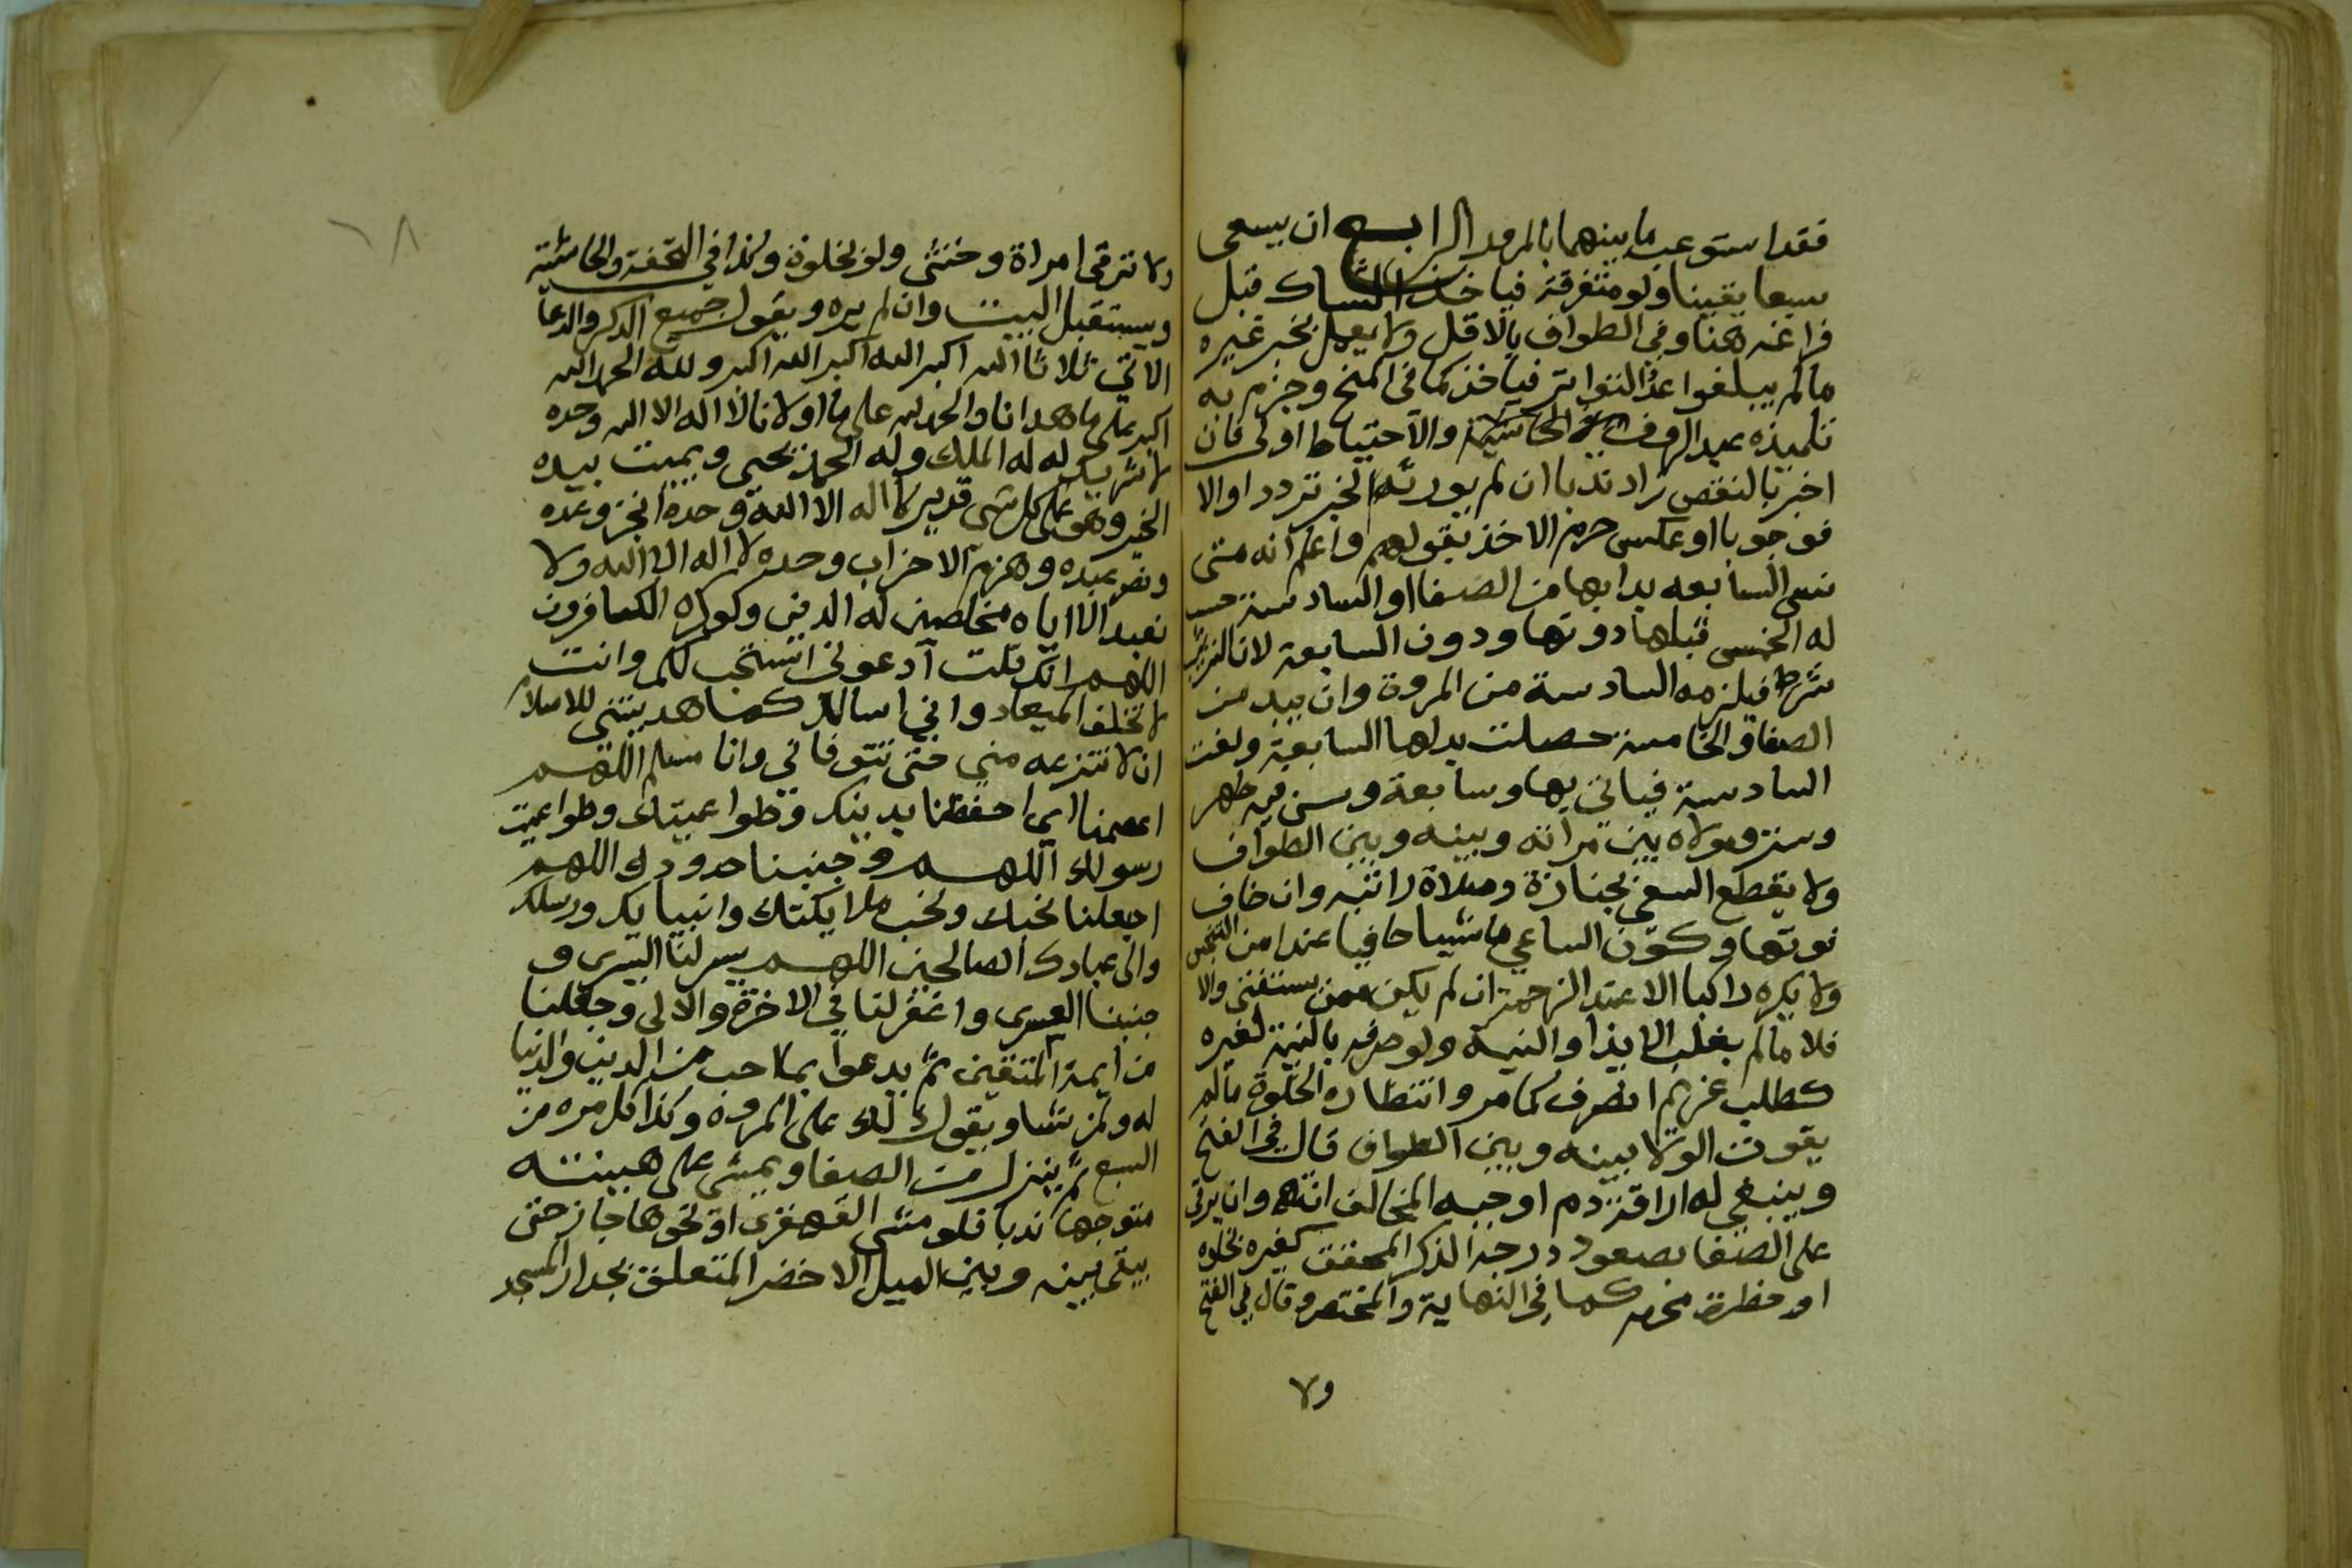 فقد استوعب ما بينهما بالمرور الرابع ان يسعى
سبعا يقينا ولو متفرقة فياخذ الشاك قبل
فراغه هنا وفي الطواف بالاقل ولا يعمل بخبر غيره
ما لم يبلغوا عدد التواتر فياخذ كما في المنح وجزم به
تلميذه عبد الروف في الحاشية والاحتياط اولى فان
اخبر بالنقص زاد ندبا ان لم يورثه الخبر تردد اوالا
فوجوبا او عكس حرم الاخذ بقولهم واعلم انه متى
نسى السابعه بدا بها من الصفا او السادسة حسب
له الخمس قبلها دونها ودون السابعة لان الترتيب
شرط فيلزمه السادسة من المروة وان يبد من
الصفا والخامسة حصلت بدلها السابعة ولغت
السادسة فياتي بها وسابعة وسن فيه طهر
وستر وولاه بين مراته وبينه وبين الطواف
ولا يقطع السعي لجنازة وصلاة راتبه وان خاف
فوتها وكون الساعي ماشيا حافيا عند امن التنجس
ولا يكره راكبا الا عند الزحمة ان لم يكن ممن يستفتى والا
فلا ما لم يغلب الايذا والنية ولو صرفه بالنية لغيره
كطلب غريم انصرف كما مر وانتظاره الخلوة ما لم
يفوت الولا بينه وبين الطواف قال في الفتح
وينبغي له اراقة دم اوجبه المخالف انتهى وان يرقى
على الصفا بصعود درجة الذكر المحقق كغيره بخلوه
او حظرة محرم كما في النهاية والمختصر وقال في الفتح
ولا
٦٨
ولا ترقى امراة وخنثى ولو بخلوة وكذا في التحفة والحاشية
ويستقبل البيت وان لم يره ويقول جميع الذكر والدعا
الآتي ثلاثا الله اكبر الله اكبر الله اكبر ولله الحمد الله
اكبر على ما هدانا والحمد لله على ما اولانا لا اله الا الله وحده
لا شريك له له الملك وله الحمد يحيي ويميت بيده
الخير وهو على كل شي قدير لا اله الا الله وحده انجز وعده
ونصر عبده وهزم الاحزاب وحده لا اله الا الله ولا
نعبد الا اياه مخلصين له الدين ولو كره الكافرون
اللهم انك قلت ادعوني استجب لكم وانت
لا تخلف الميعاد واني اسالك كما هديتني للاسلام
ان لا تنزعه مني حتى تتوفاني وانا مسلم اللهم
اعصمنا اي احفظنا بدينك وطواعيتك وطواعية
رسولك اللهم وجنبنا حدودك اللهم
اجعلنا نحبك ونحب ملايكتك وانبيايك ورسلك
والى عبادك الصالحين اللهم يسر لنا اليسرى و
جنبنا العسرى واغفر لنا في الاخرة والاولى وجعلنا
من ايمة المتقين ثم يدعوا بما احب من الدين والدنيا
له ولمن شا ويقول ذلك على المروة وكذا كل مره من
السبع ثم ينزل من الصفا ويمشى على هينته
متوجها ندبا فلو مشى القهقرى او نحوها جاز حتى
يبقى بينه وبين الميل الاخضر المتعلق بجدار المسجد